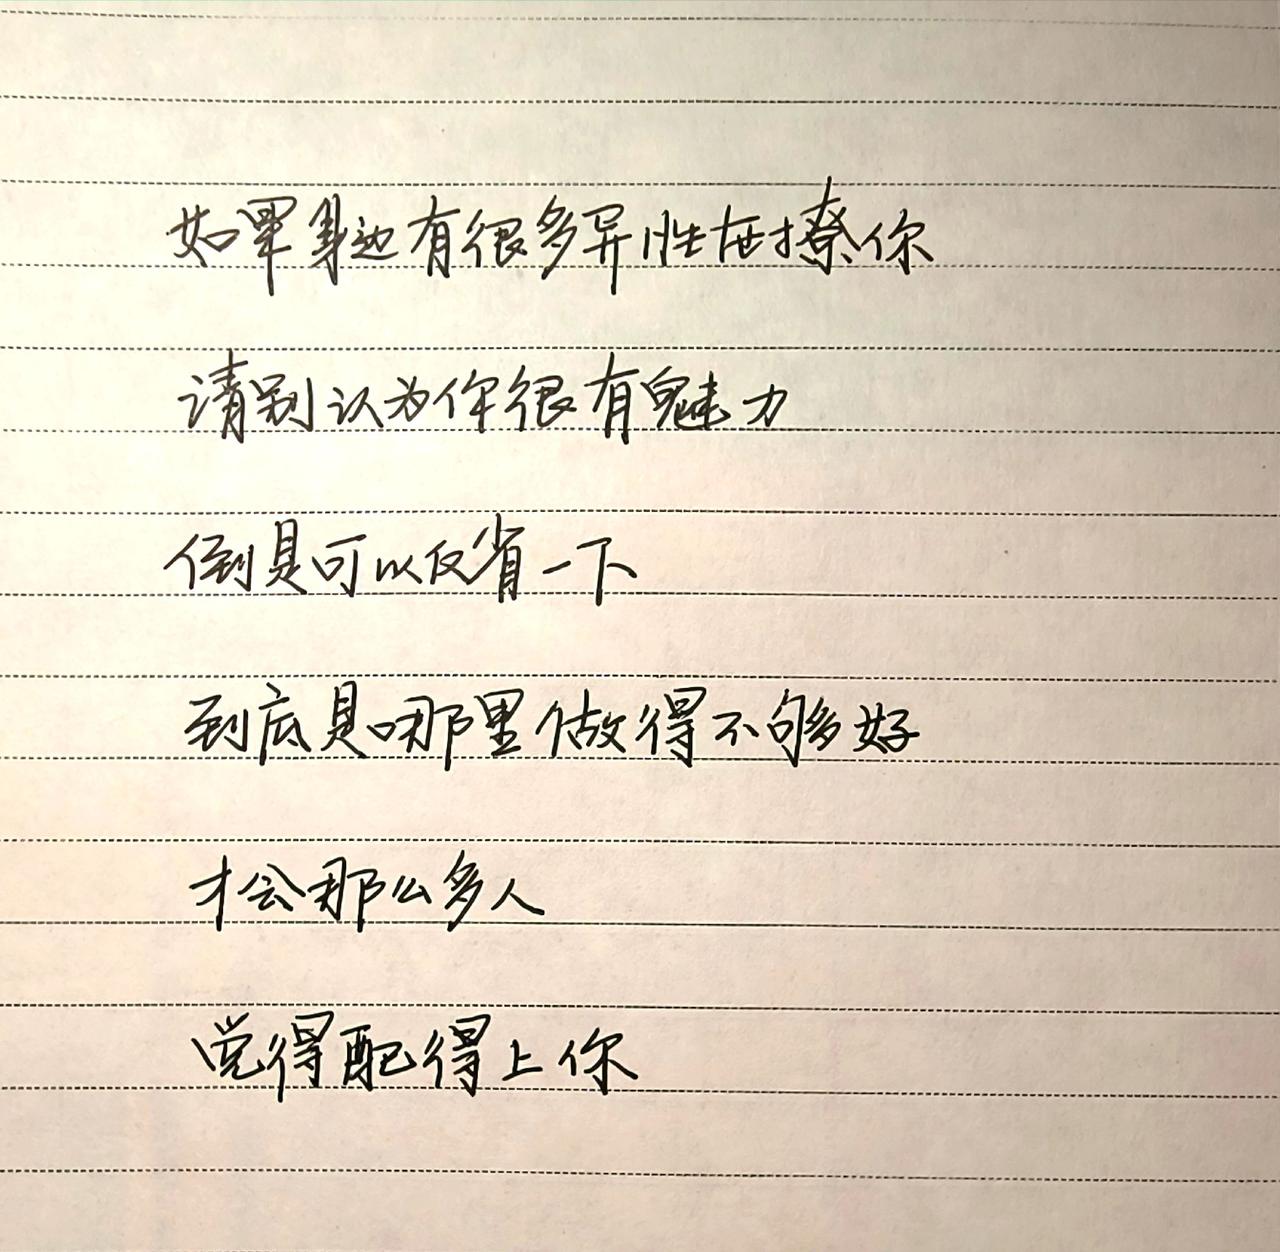 如果身边有很多异性在撩你
请别认为你很有魅力
倒是可以反省一下
到底是哪里做得不够好
才会那么多人
觉得配得上你